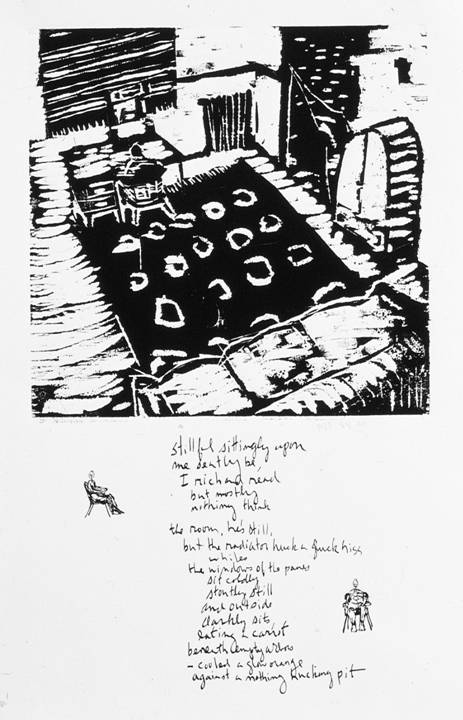 stillful sittingly upon
me seatly be,
I richard read
but mostly
nothing think
the room, he's still,
but the radiator huck a fuck hiss
whiles
the windows of the panes
sit coldly
stontly still
and outside
darkly sits,
eating a carrot
beneath empty
– cooled a glow orange
against a nothing hucking pit